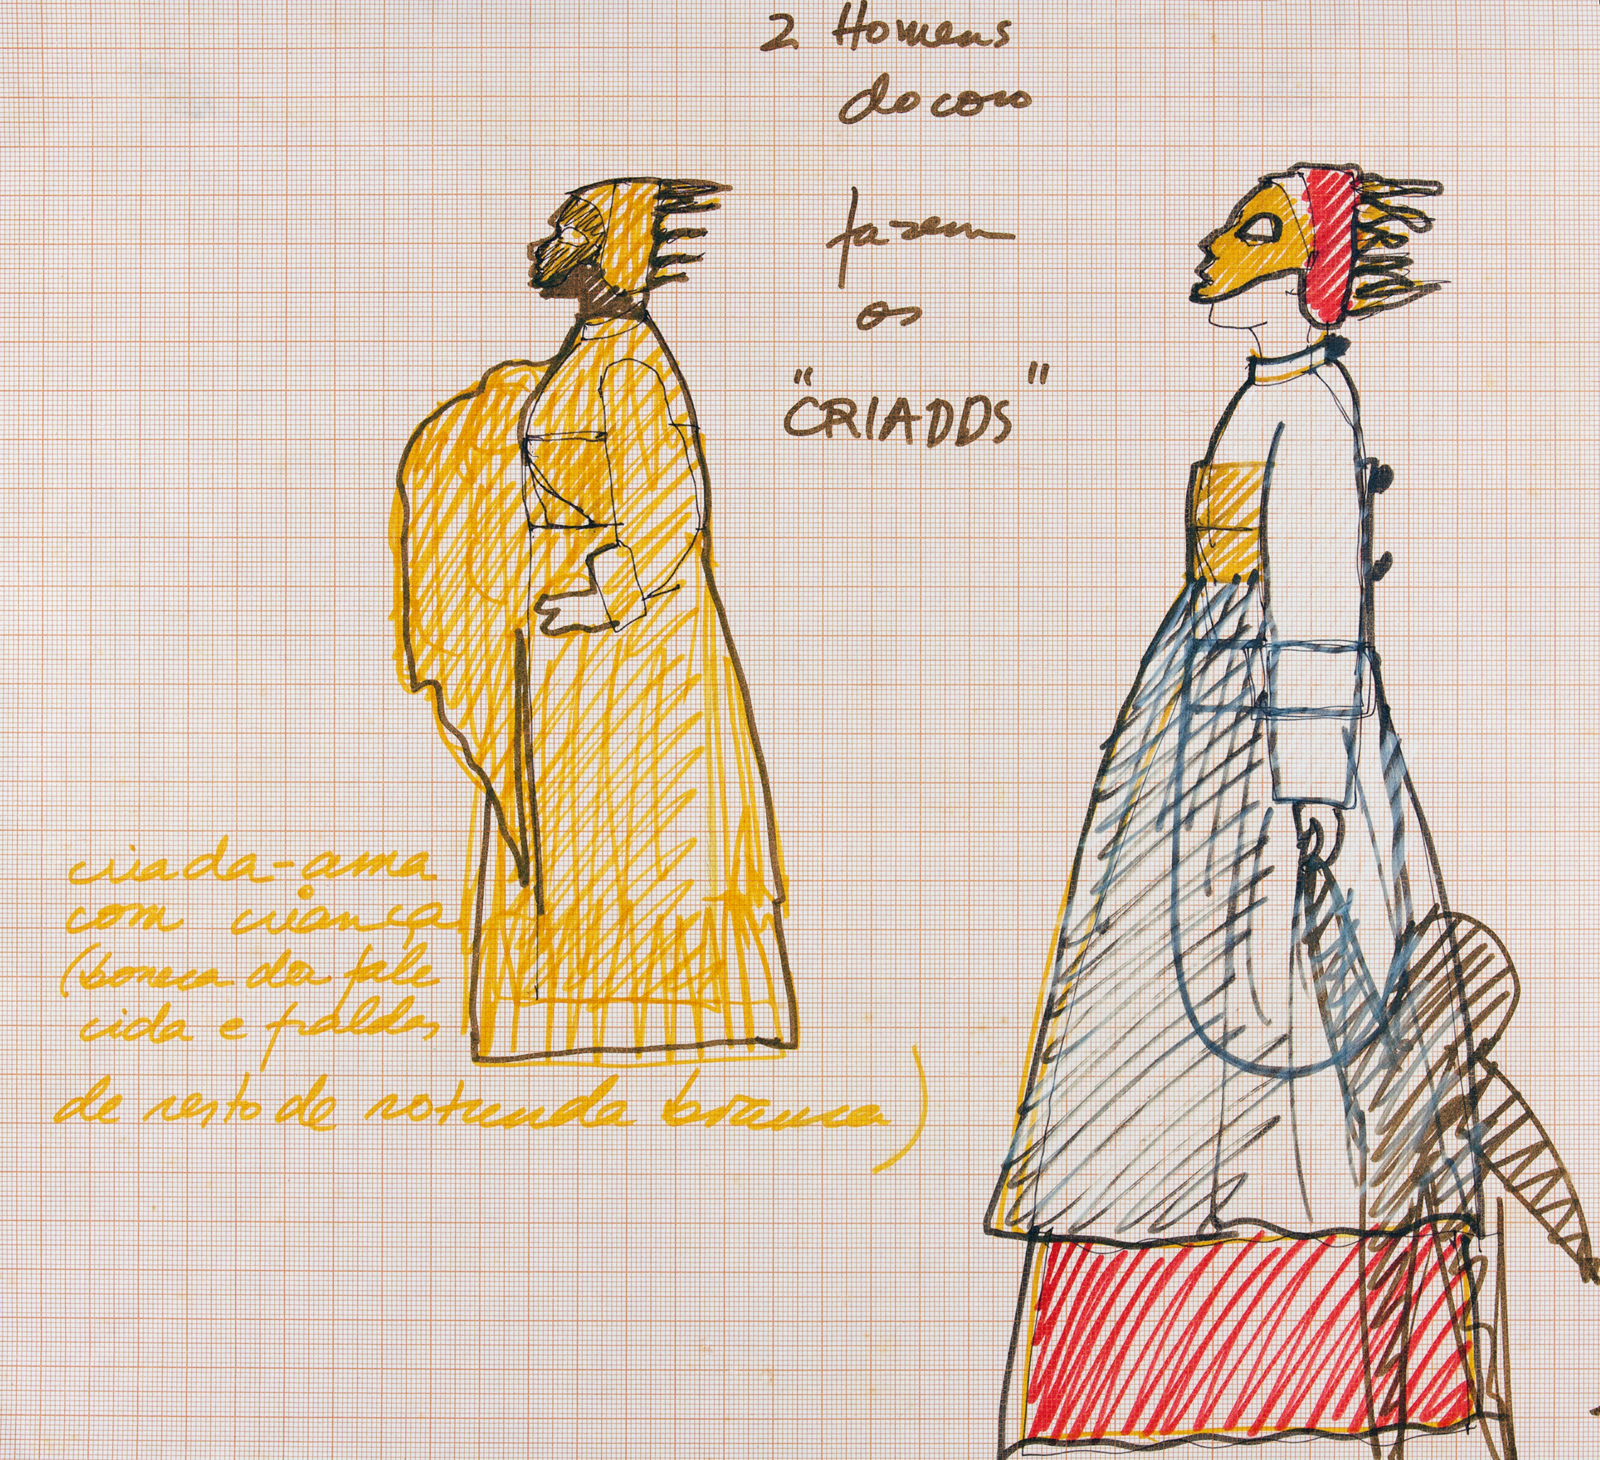 2 Homens
do coro
fazem
os
"CRIADOS"
criada-ama
com criança
(boneca da fale
cida e fraldas
de resto de rotunda branca)